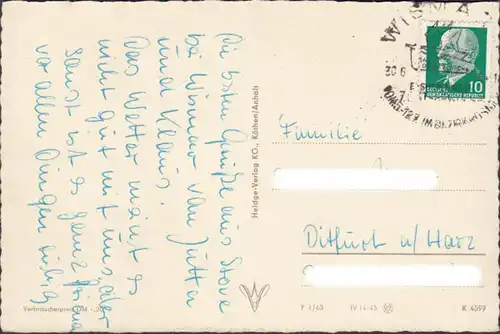 Die besten Grüße aus Stove
bei Wismar von Jutta
und Klaus.
Das Wetter meint es
nicht gut mit uns, aber
sonst ist es ganz prima
vor allen Dingen ruhig
Verbraucherpreis DM -,2
Heldge-Verlag KO., Köthen/Anhalt
WISMA
30.6
10
DEUTSCHE
DEMOKRATISCHE REPUBLIK
Familie
Ditfurt n/Harz
P 1/63 IV/14/45 K 4597